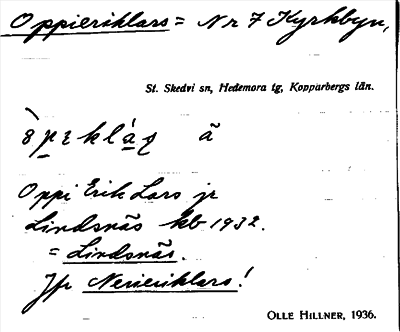 Oppieriklars = Nr 7 Kyrkbyn,
St. Skedvi sn, Hedemora tg, Kopparbergs län.
ã
Oppi Erik Lars jr
Lindsnäs kb 1932.
= Lindsnäs.
Jfr Nerieriklars!
OLLE HILLNER, 1936.